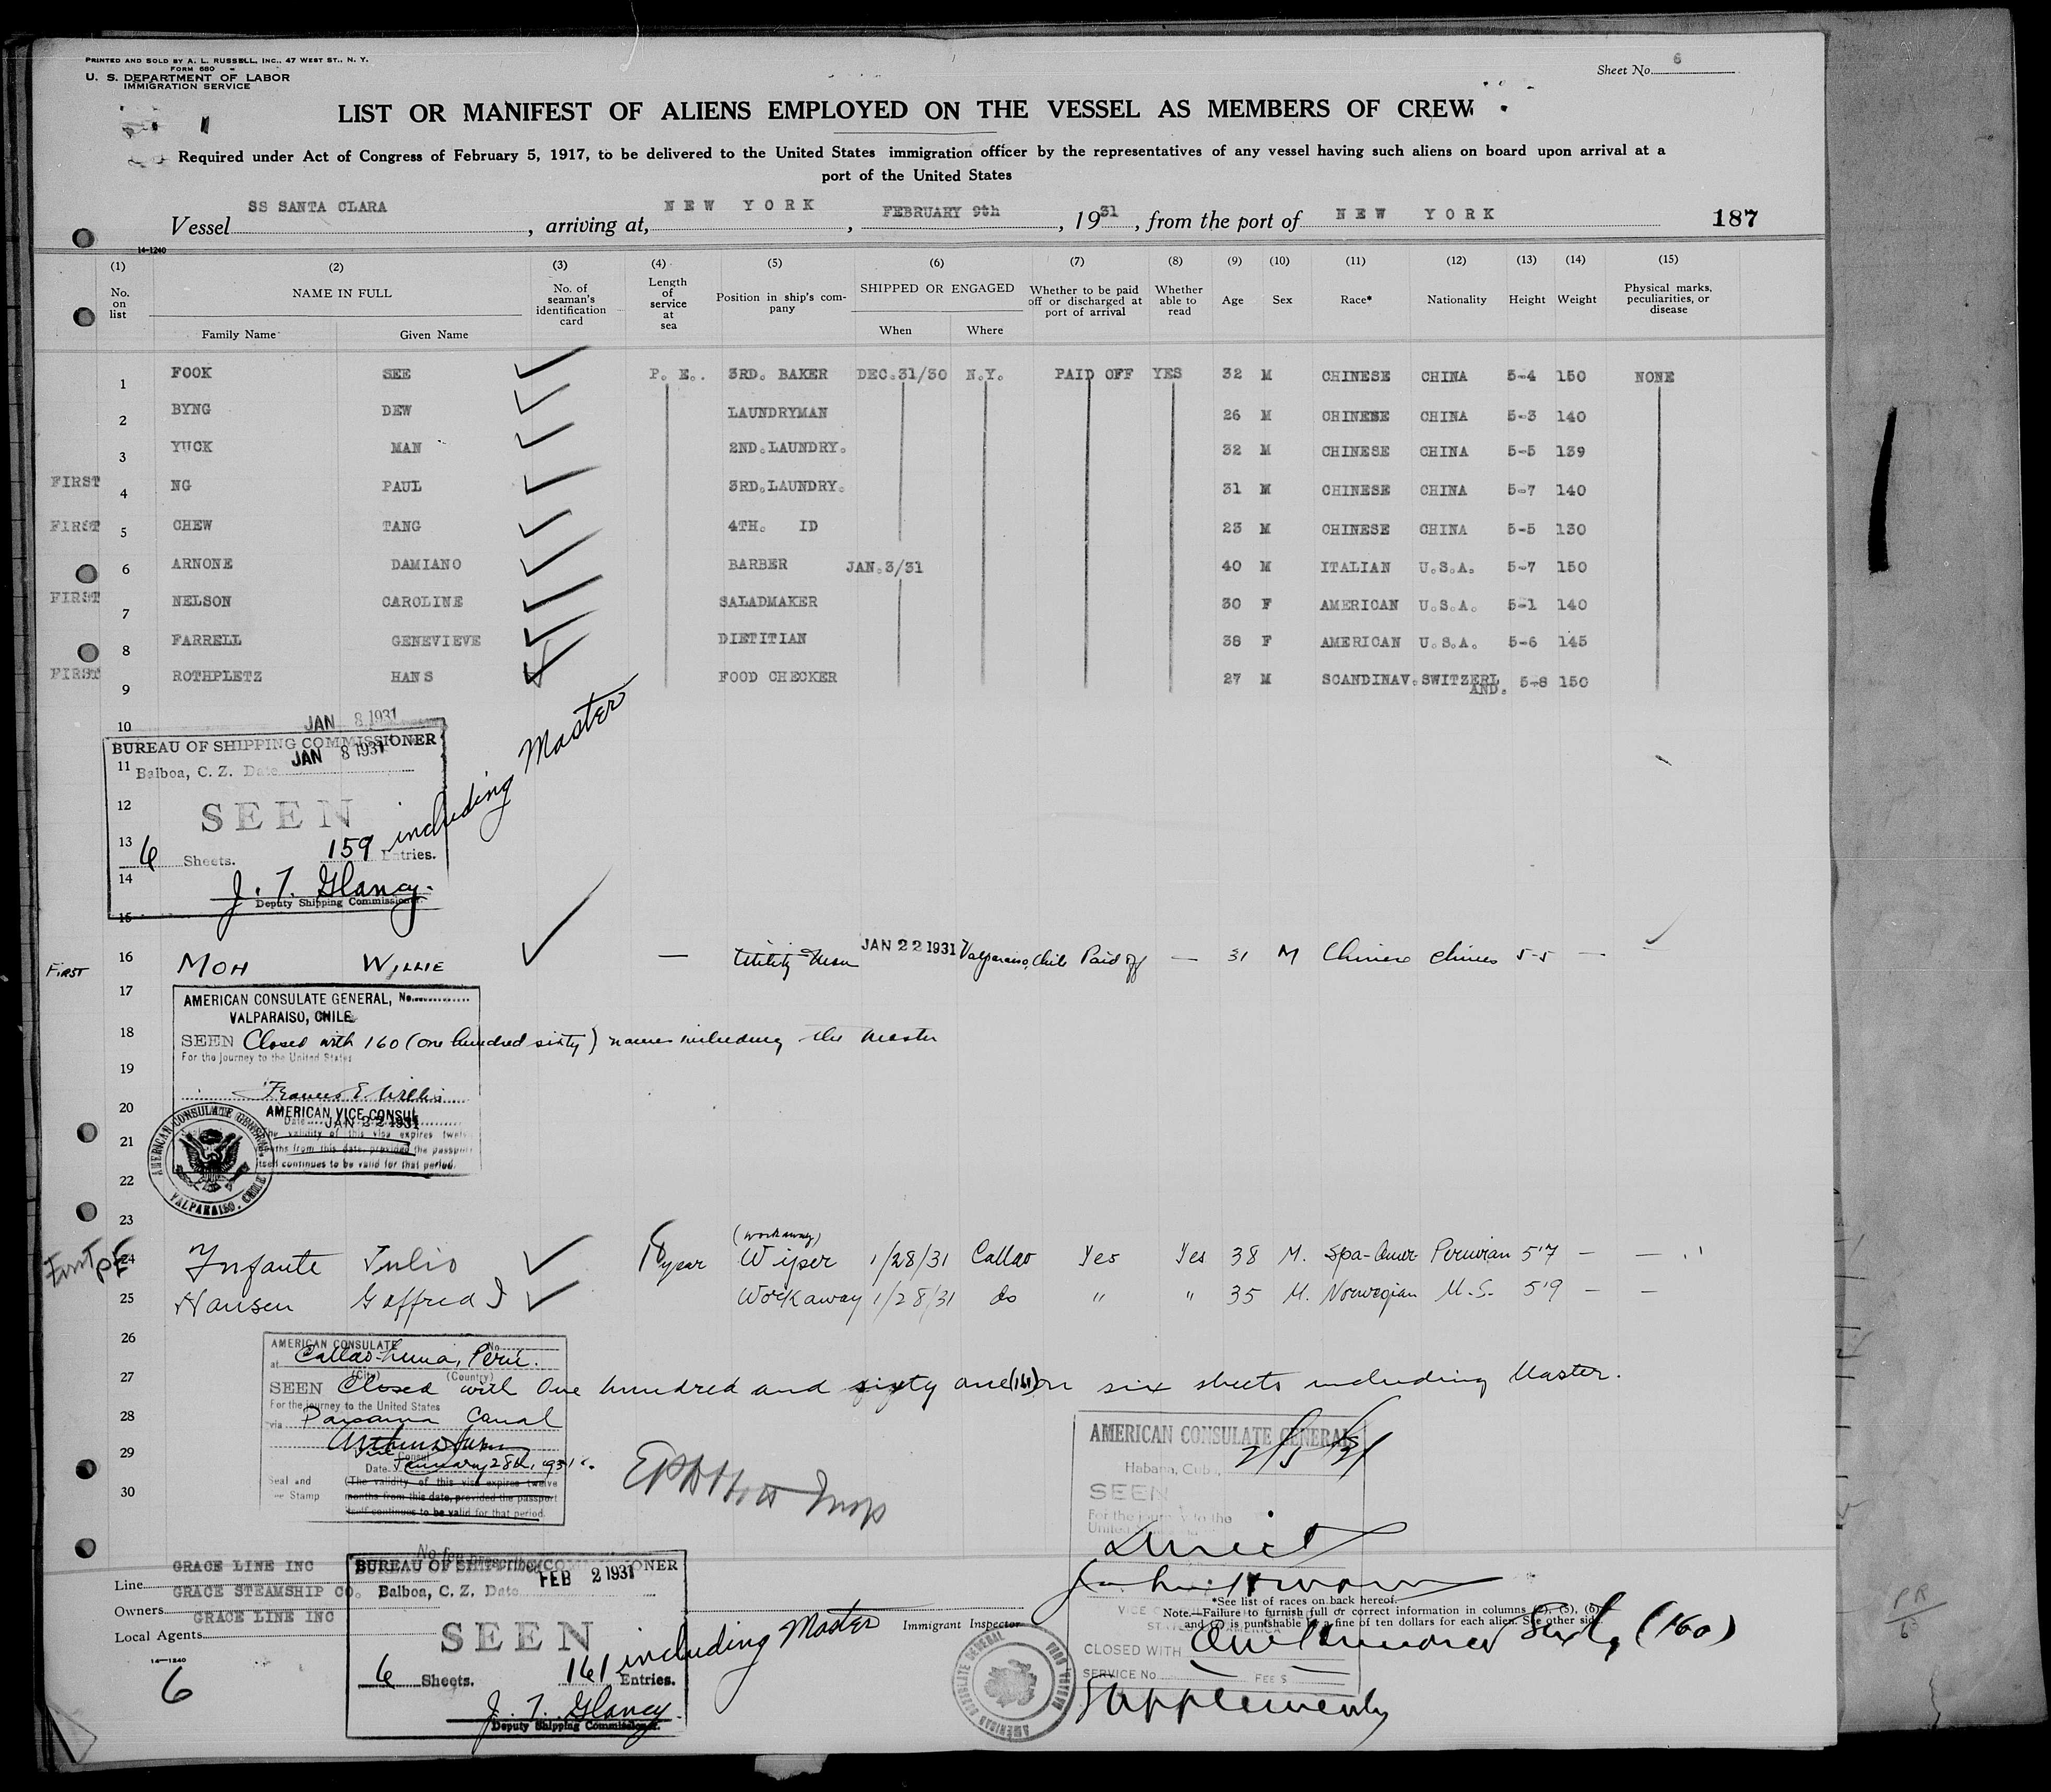 PRINTED AND SOLD BY A. L. RUSSELL, INC., 47 WEST ST., N. Y.
FORM 680
U. S. DEPARTMENT OF LABOR
IMMIGRATION SERVICE
Sheet No. 6
LIST OR MANIFEST OF ALIENS EMPLOYED ON THE VESSEL AS MEMBERS OF CREW
Required under Act of Congress of February 5, 1917, to be delivered to the United States immigration officer by the representatives of any vessel having such aliens on board upon arrival at a
port of the United States
Vessel SS SANTA CLARA, arriving at, NEW YORK, FEBRUARY 9th, 1931, from the port of NEW YORK 187
14-1240
(1) (2) (3) (4) (5) (6) (7) (8) (9) (10) (11) (12) (13) (14) (15)
No. on list NAME IN FULL No. of seaman's identification card Length of service at sea Position in ship's company SHIPPED OR ENGAGED Whether to be paid off or discharged at port of arrival Whether able to read Age Sex Race* Nationality Height Weight Physical marks, peculiarities, or disease
Family Name Given Name When Where
1 FOOK SEE P. E.. 3RD. BAKER DEC.31/30 N.Y. PAID OFF YES 32 M CHINESE CHINA 5-4 150 NONE
2 BYNG DEW LAUNDRYMAN 26 M CHINESE CHINA 5-3 140
3 YUCK MAN 2ND.LAUNDRY. 32 M CHINESE CHINA 5-5 139
FIRST 4 NG PAUL 3RD.LAUNDRY. 31 M CHINESE CHINA 5-7 140
FIRST 5 CHEW TANG 4TH. ID 23 M CHINESE CHINA 5-5 130
6 ARNONE DAMIANO BARBER JAN.3/31 40 M ITALIAN U.S.A. 5-7 150
FIRST 7 NELSON CAROLINE SALADMAKER 30 F AMERICAN U.S.A. 5-1 140
8 FARRELL GENEVIEVE DIETITIAN 38 F AMERICAN U.S.A. 5-6 145
FIRST 9 ROTHPLETZ HANS FOOD CHECKER 27 M SCANDINAV. SWITZERLAND. 5-8 150
10 JAN 8 1931
BUREAU OF SHIPPING COMMISSIONER
11 Balboa, C. Z. Date JAN 8 1931
12 SEEN
13 6 Sheets. 159 Entries. including Master
14 J. T. Glancy.
Deputy Shipping Commissioner.
15
FIRST 16 MOH WILLIE — Utility Man JAN 22 1931 Valparaiso, Chile Paid off — 31 M Chinese Chinese 5-5 — —
17 AMERICAN CONSULATE GENERAL, No.
VALPARAISO, CHILE
18 SEEN Closed with 160 (one hundred sixty) names including the Master
For the journey to the United States
19
Frances E. Willis
20 AMERICAN VICE CONSUL
Date JAN 22 1931
21 The validity of this visa expires twelve
months from this date, provided the passport
itself continues to be valid for that period.
AMERICAN CONSULATE GENERAL VALPARAISO, CHILE
22
23
First PE 24 Infante Julio 8 year (workaway) Wiper 1/28/31 Callao Yes Yes 38 M. Spa-Amer Peruvian 5'7 — —
25 Hansen Goffred J Workaway 1/28/31 do " " 35 M. Norwegian U.S. 5'9 — —
26 AMERICAN CONSULATE No.
at Callao-Lima, Peru.
(City) (Country)
27 SEEN Closed with One hundred and sixty one (161) on six sheets including Master.
For the journey to the United States
28 via Panama Canal
29 Vice Consul
Date January 28th, 1931.
30 Seal and Fee Stamp (The validity of this visa expires twelve
months from this date, provided the passport
itself continues to be valid for that period.
No fee prescribed
Insp
AMERICAN CONSULATE GENERAL
Habana, Cuba, 2/5/31
SEEN
For the journey to the
United States
Direct
Line GRACE LINE INC
Owners GRACE STEAMSHIP CO.
Local Agents GRACE LINE INC
14-1240
6
BUREAU OF SHIPPING COMMISSIONER
Balboa, C. Z. Date FEB 2 1931
SEEN
6 Sheets. 161 Entries. including Master
J. T. Glancy
Deputy Shipping Commissioner.
Immigrant Inspector
*See list of races on back hereof.
Note.—Failure to furnish full or correct information in columns (2), (5), (6)
and (7) is punishable by a fine of ten dollars for each alien. See other side
CLOSED WITH One Hundred Sixty (160)
SERVICE No. FEE $
Supplementy
AMERICAN CONSULATE GENERAL HABANA, CUBA
PR
6